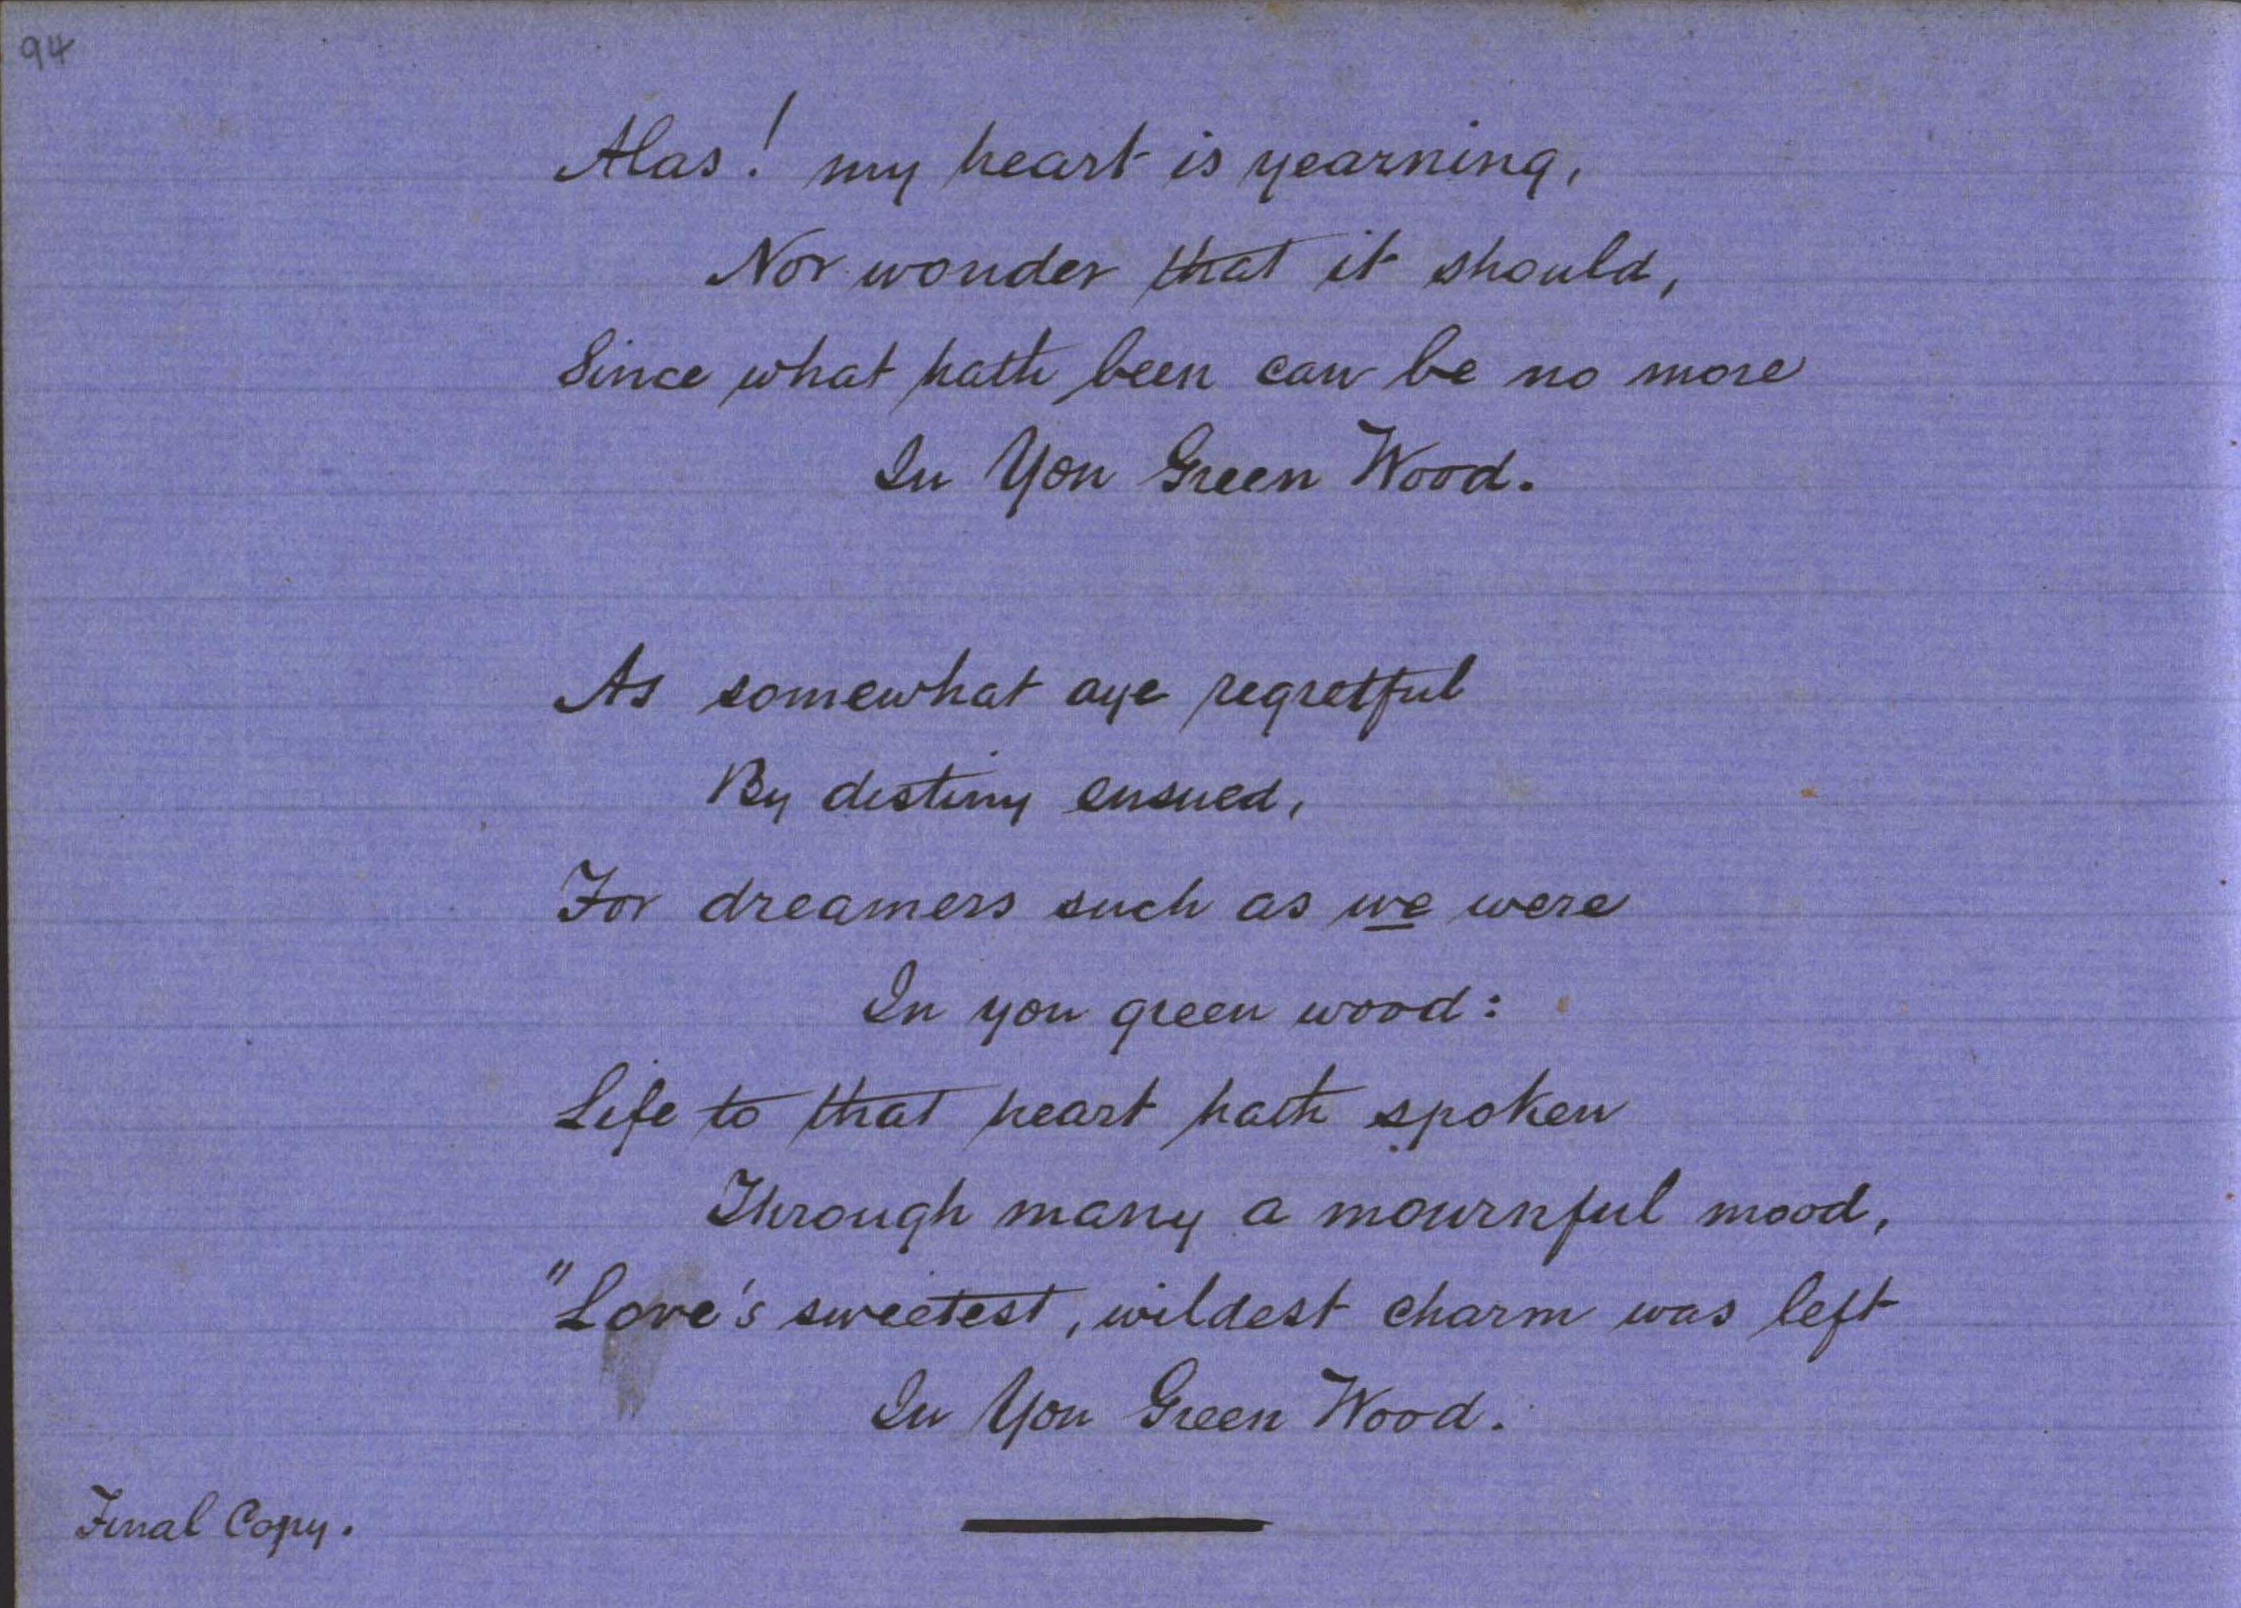 94
Alas! my heart is yearning,
Nor wonder that it should,
Since what hath been can be no more
In Yon Green Wood.
As somewhat aye regretful
By destiny ensued,
For dreamers such as we were
In yon green wood:
Life to that heart hath spoken
Through many a mournful mood,
"Love's sweetest, wildest charm was left
In Yon Green Wood.
Final Copy.